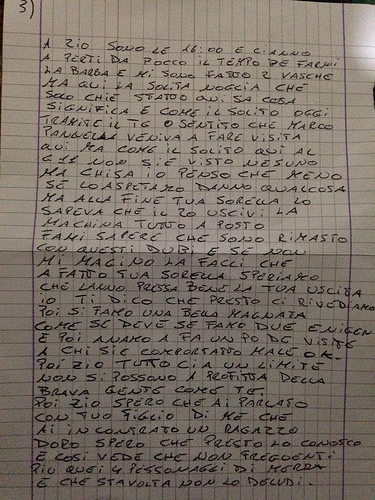 3)
A ZIO SONO LE 16:00 E C'ANNO
A PERTI DA POCCO IL TEMPO DE FARMI
LA BARBA E MI SONO FATTO 2 VASCHE
MA QUI LA SOLITA NOGGIA CHE
SOLO CHIE STATTO QUI SA COSA
SIGNIFICA E COME IL SOLITO OGGI
TRAMITE IL TG O SENTITO CHE MARCO
PANNELLA VENIVA A FARE VISITA
QUI MA COME IL SOLITO QUI AL
G11 NON SIE VISTO NESUNO
MA CHISA IO PENSO CHE MENO
SE LO ASPETAMO DANNO QUALCOSA
MA ALLA FINE TUA SORELLA LO
SAPEVA CHE IL 20 USCIVI LA
MACHINA TUTTO A POSTO
FAMI SAPERE CHE SONO RIMASTO
CON QUESTI DUBI E SE NON
MI MAGINO LA FACCI CHE
A FATTO TUA SORELLA SPERIAMO
CHE LANNO PRESSA BENE LA TUA USCITA
IO TI DICO CHE PRESTO CI RIVEDIAMO
POI SI FAMO UNA BELLA MAGNATA
COME SE DEVE SE FAMO DUE
E POI ANAMO A FA UN PO DE VISITE
A CHI SIE COMPORTATTO MALE OK.
POI ZIO TUTTO CIA UN LIMITE
NON SI POSSONO A PROFITTA DELLA
BRAVA GENTE COME TE.
POI ZIO SPERO CHE AI PARLATO
CON TUO FIGLIO DI ME CHE
AI IN CONTRATO UN RAGAZZO
DORO SPERO CHE PRESTO LO CONOSCO
E COSI VEDE CHE NON FREGUENTI
PIU QUEI 4 PESSONAGGI DI MERDA
E CHE STAVOLTA NON LO DELUDI.